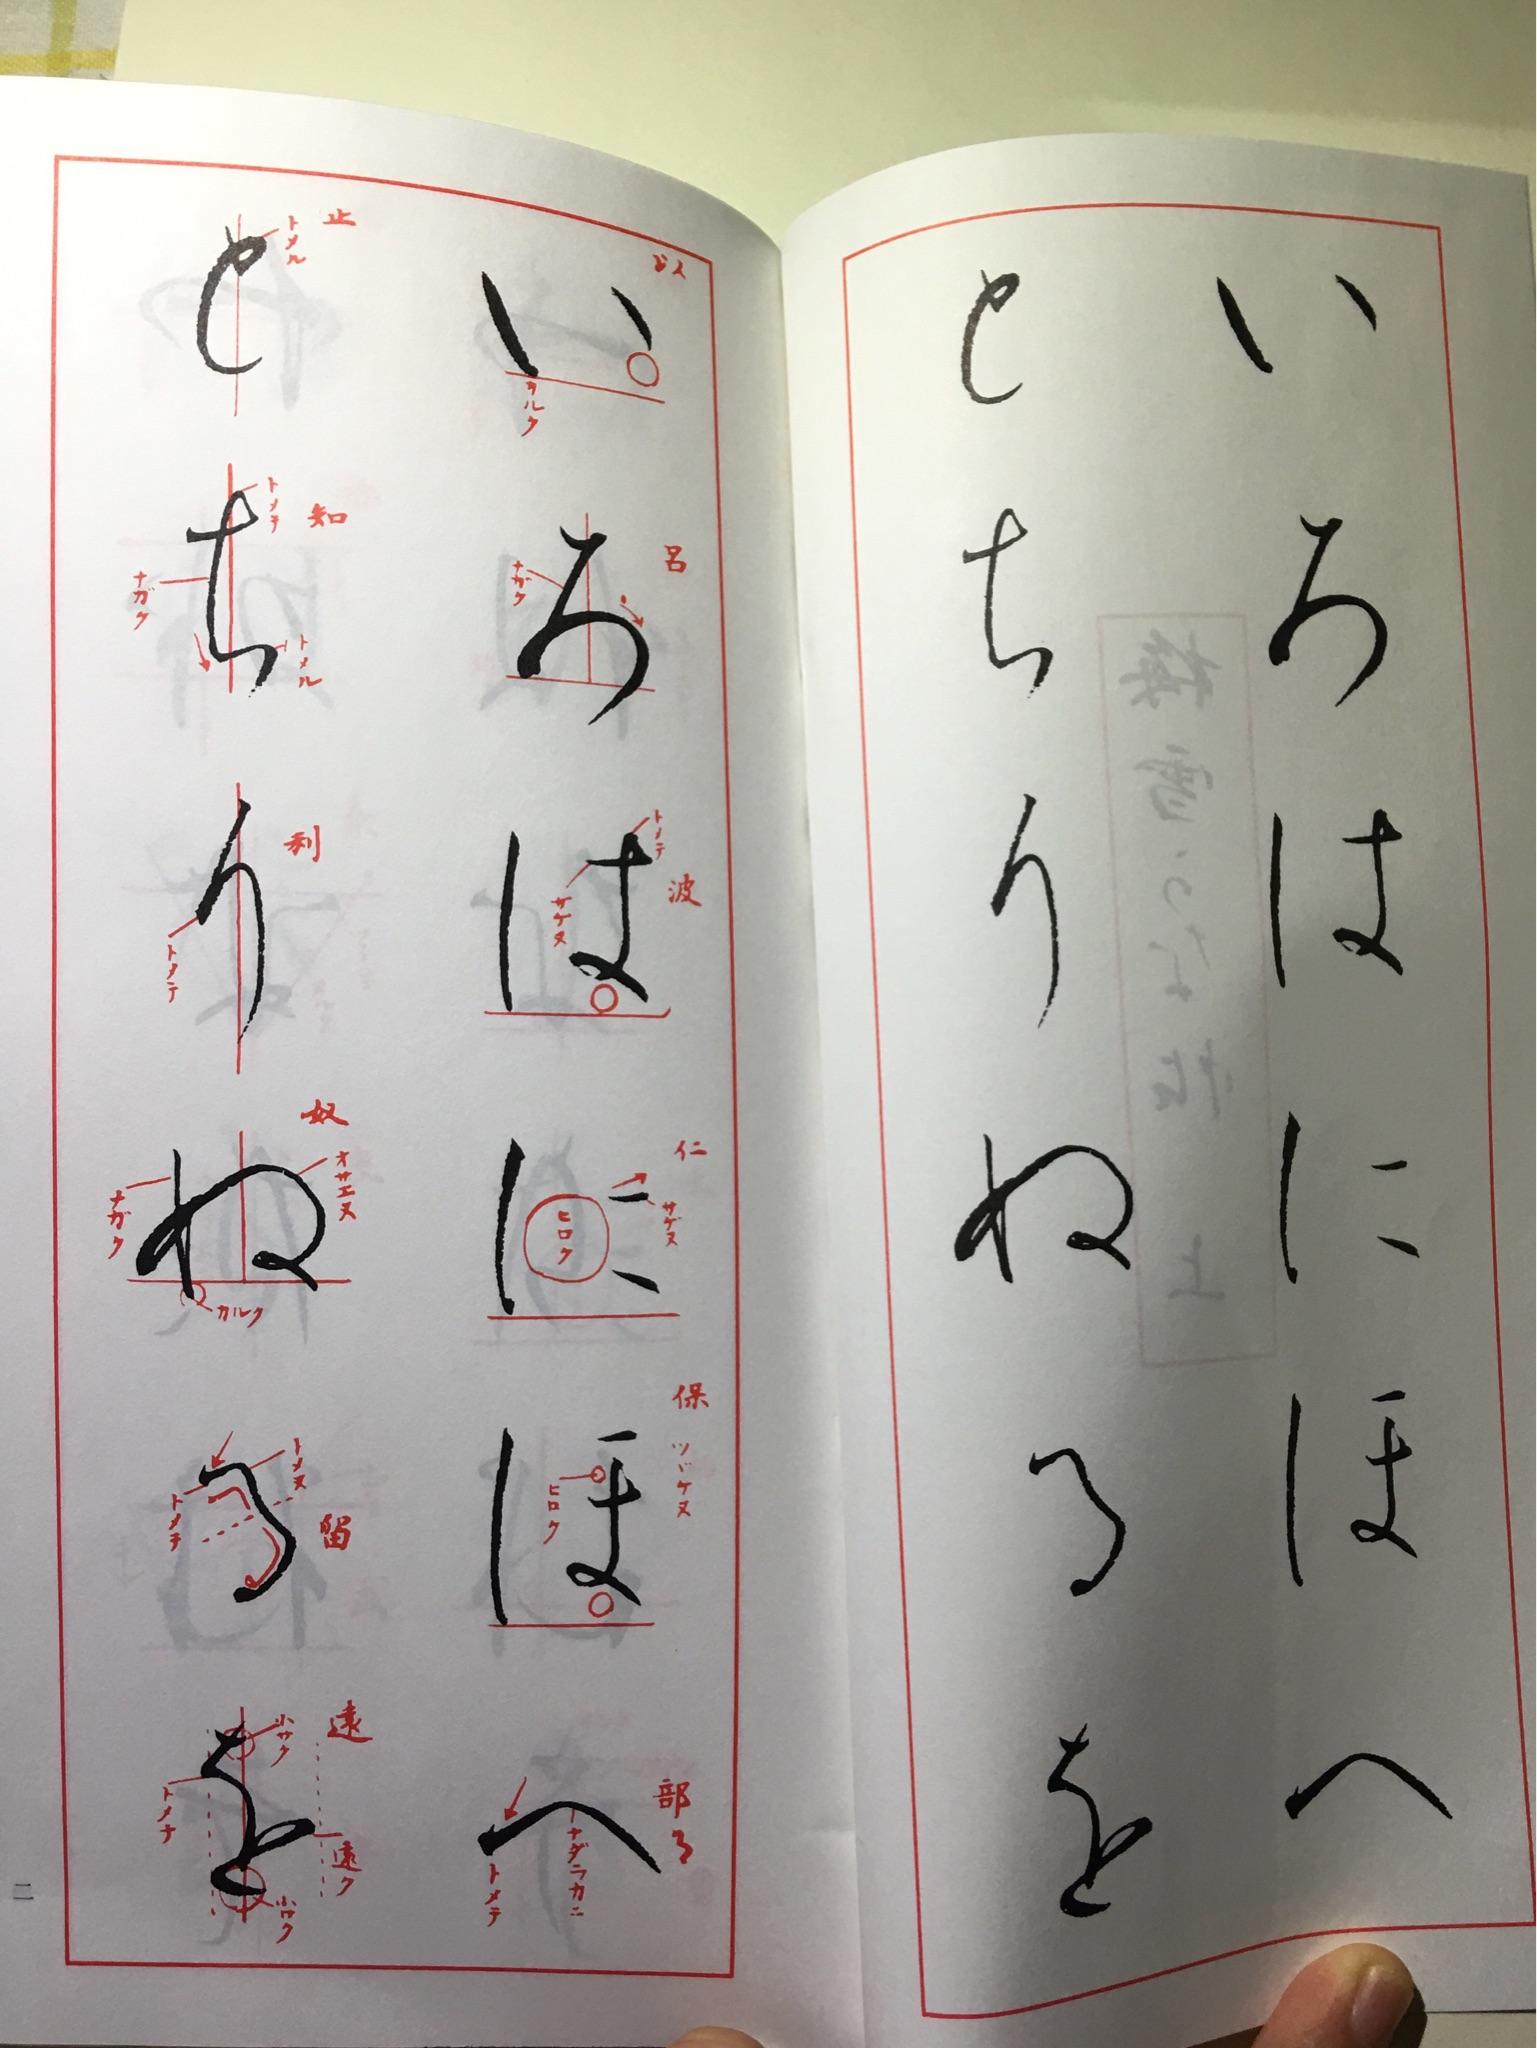 いろはにほへ
とちりぬるを
い
カルク
ろ
呂
ナガク
は
波
トメテ
サケヌ
に
仁
ヒロク
サゲヌ
ほ
保
ツヾケヌ
ヒロク
へ
部
トメテ
ナダラカニ
と
止
トメル
ち
知
トメテ
ナガク
トメル
り
利
トメテ
ぬ
奴
オサエヌ
ナガク
カルク
る
留
トメヌ
トメテ
を
遠
小サク
遠ク
二